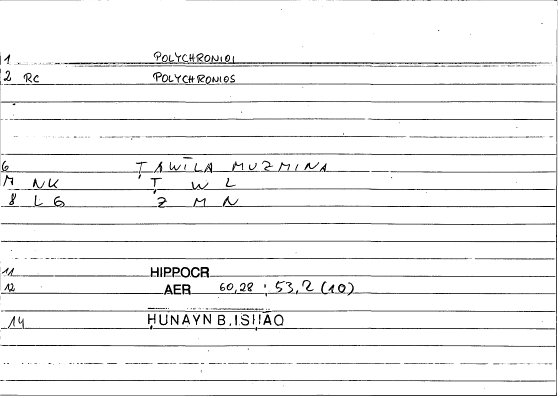 1 POLYCHRONIOI
2 RC POLYCHRONIOS
6 ṬAWĪLA MUZMINA
M NK Ṭ W L
8 LG Z M N
11 HIPPOCR
12 AER 60,28 : 53,2 (10)
14 ḤUNAYN B. ISḤĀQ